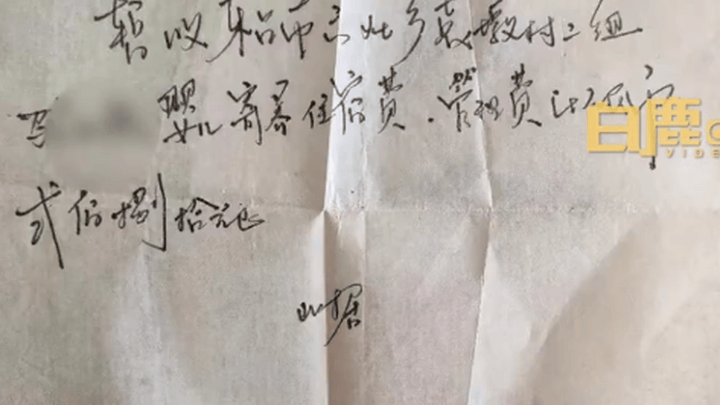 暂收 市 乡 村二组
婴儿寄养住宿费.管理费计人民币
弍佰捌拾元正
此据
白鹿
VIDE